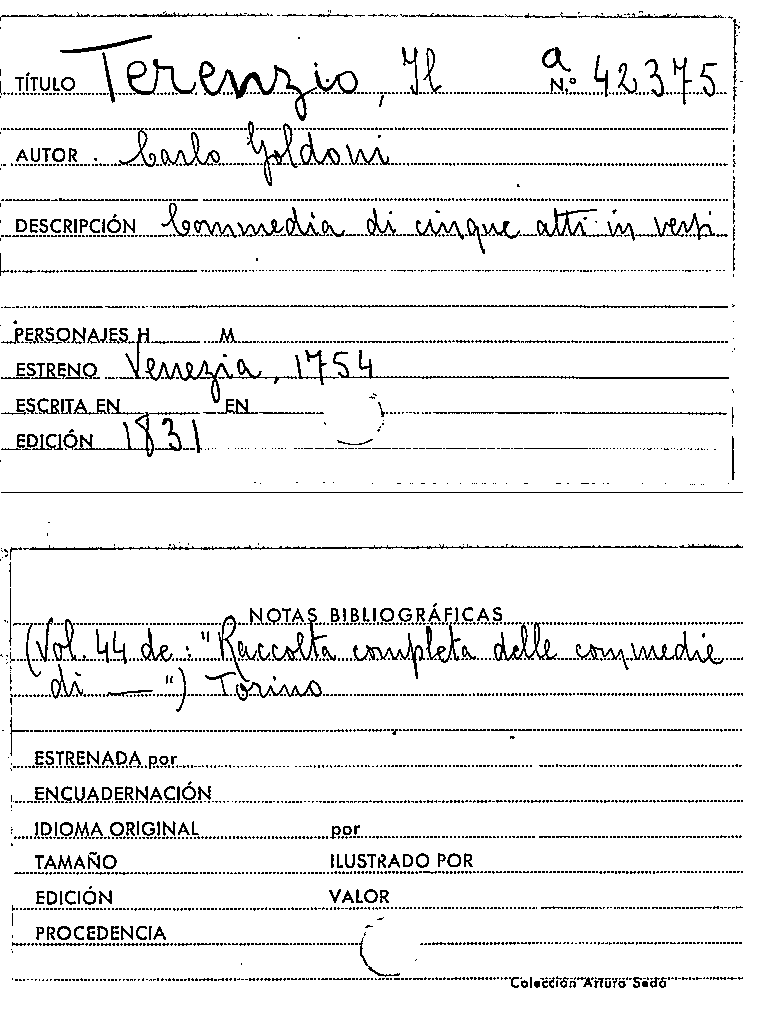 TÍTULO Terenzio, Il a N.º 42375
AUTOR . Carlo Goldoni
DESCRIPCIÓN Commedia di cinque atti in versi
PERSONAJES H M
ESTRENO Venezia, 1754
ESCRITA EN EN
EDICIÓN 1831
NOTAS BIBLIOGRÁFICAS
(Vol. 44 de: "Raccolta completa delle commedie
di —") Torino
ESTRENADA por
ENCUADERNACIÓN
IDIOMA ORIGINAL por
TAMAÑO ILUSTRADO POR
EDICIÓN VALOR
PROCEDENCIA
Colección Arturo Sedó